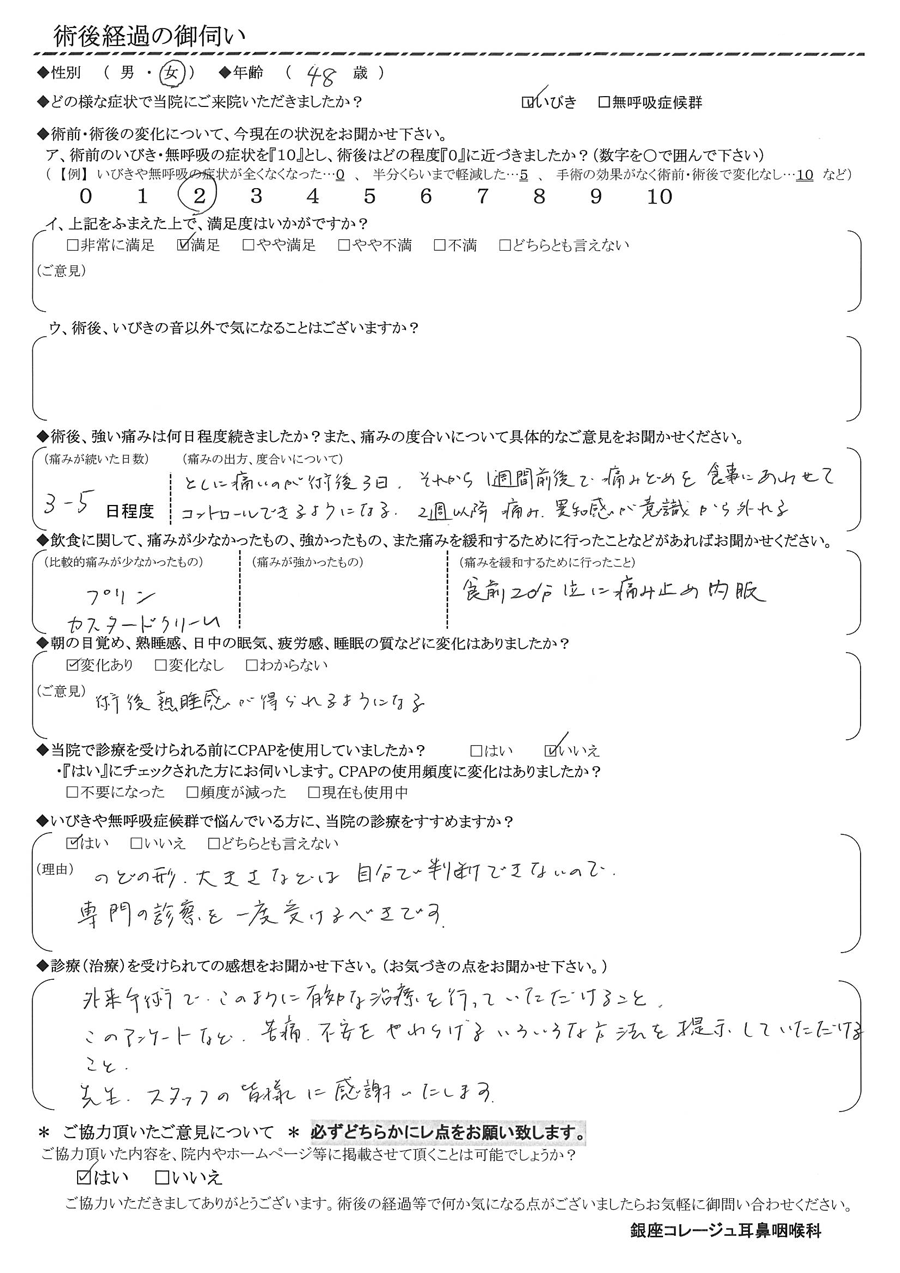 術後経過の御伺い
◆性別 （ 男 ・ 女 ） ◆年齢 （ 48 歳 ）
◆どの様な症状で当院にご来院いただきましたか？ ☑いびき □無呼吸症候群
◆術前・術後の変化について、今現在の状況をお聞かせ下さい。
ア、術前のいびき・無呼吸の症状を『10』とし、術後はどの程度『0』に近づきましたか？（数字を〇で囲んで下さい）
（ 【例】 いびきや無呼吸の症状が全くなくなった…0 、 半分くらいまで軽減した…5 、 手術の効果がなく術前・術後で変化なし…10 など）
0 1 2 3 4 5 6 7 8 9 10
イ、上記をふまえた上で、満足度はいかがですか？
□非常に満足 ☑満足 □やや満足 □やや不満 □不満 □どちらとも言えない
（ご意見）
ウ、術後、いびきの音以外で気になることはございますか？
◆術後、強い痛みは何日程度続きましたか？また、痛みの度合いについて具体的なご意見をお聞かせください。
（痛みが続いた日数） （痛みの出方、度合いについて）
とくに痛いのが術後3日、それから1週間前後で痛みとめを食事にあわせて
3-5 日程度 コントロールできるようになる。2週以降 痛み、異和感が意識から外れる
◆飲食に関して、痛みが少なかったもの、強かったもの、また痛みを緩和するために行ったことなどがあればお聞かせください。
（比較的痛みが少なかったもの） （痛みが強かったもの） （痛みを緩和するために行ったこと）
プリン 食前20分位に痛み止め内服
カスタードクリーム
◆朝の目覚め、熟睡感、日中の眠気、疲労感、睡眠の質などに変化はありましたか？
☑変化あり □変化なし □わからない
（ご意見） 術後熟睡感が得られるようになる
◆当院で診療を受けられる前にCPAPを使用していましたか？ □はい ☑いいえ
・『はい』にチェックされた方にお伺いします。CPAPの使用頻度に変化はありましたか？
□不要になった □頻度が減った □現在も使用中
◆いびきや無呼吸症候群で悩んでいる方に、当院の診療をすすめますか？
☑はい □いいえ □どちらとも言えない
（理由） のどの形、大きさなどは自分で判断できないので、
専門の診察を一度受けるべきです。
◆診療（治療）を受けられての感想をお聞かせ下さい。（お気づきの点をお聞かせ下さい。）
外来手術で、このように有効な治療を行っていただけること、
このアンケートなど、苦痛、不安をやわらげるいろいろな方法を提示していただける
こと、
先生、スタッフの皆様に感謝いたします。
＊ ご協力頂いたご意見について ＊ 必ずどちらかにレ点をお願い致します。
ご協力頂いた内容を、院内やホームページ等に掲載させて頂くことは可能でしょうか？
☑はい □いいえ
ご協力いただきましてありがとうございます。術後の経過等で何か気になる点がございましたらお気軽に御問い合わせください。
銀座コレージュ耳鼻咽喉科